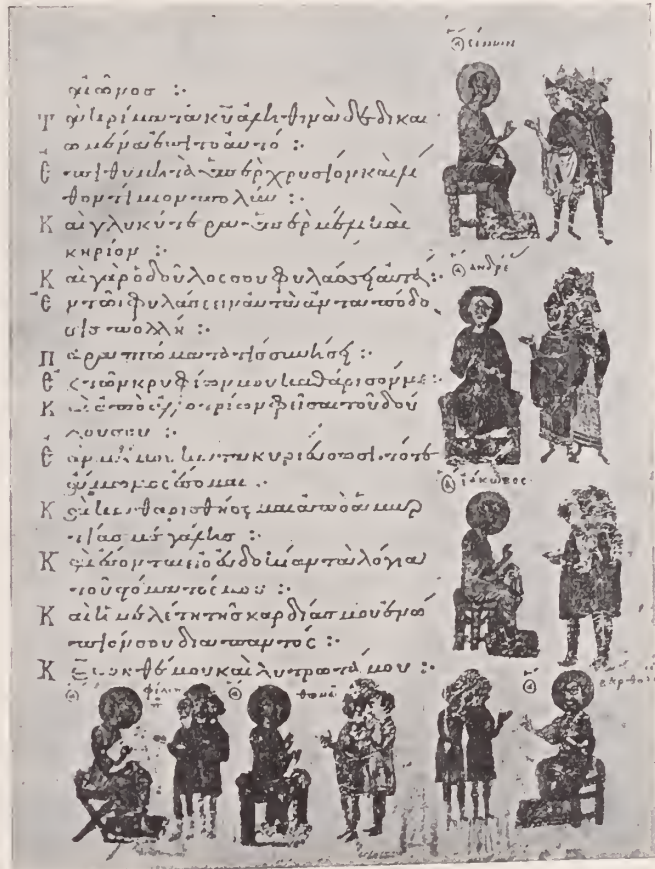 αἰῶνος :·
Τὰ κρίματα κυ ἀληθινὰ δεδικαι
ωμένα ἐπιτοαυτό :·
Ἐπιθυμητὰ ὑπὲρ χρυσίον καὶ λί
θον τίμιον πολύν :·
Καὶ γλυκύτερα ὑπὲρ μέλι καὶ
κηρίον :·
Καὶ γὰρ ὁ δοῦλος σου φυλάσσει αὐτά :·
Ἐν τῶι φυλάσσειν αὐτὰ ἀνταπόδο
σις πολλή :·
Παραπτώματα τίς συνήσει :·
Ἐκ τῶν κρυφίων μου καθάρισόν με :·
Καὶ ἀπὸ ἀλλοτρίων φεῖσαι τοῦ δού
λου σου :·
Ἐὰν μή μου κατακυριεύσωσι τότε
ἄμωμος ἔσομαι :·
Καὶ καθαρισθήσομαι ἀπὸ ἁμαρ
τίας μεγάλης :·
Καὶ ἔσονται εἰς εὐδοκίαν τὰ λόγια
τοῦ στόματός μου :·
Καὶ ἡ μελέτη τῆς καρδίας μου ἐνώ
πιόν σου διαπαντός :·
Κε βοηθέ μου καὶ λυτρωτά μου :·
σίμων
ἀνδρέ
ἰάκωβος
φίλιπ
θωμᾶ
βαρθολ